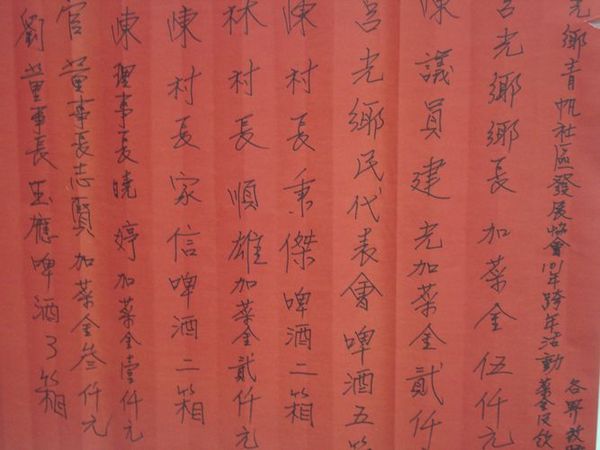 光鄉青帆社區發展協會101年跨年活動菜金及飲
各界
呂光鄉鄉長加菜金伍仟元
陳議員建光加菜金貳仟
呂光鄉民代表會啤酒五箱
陳村長秉傑啤酒二箱
林村長順雄加菜金貳仟元
陳村長家信啤酒二箱
陳理事長曉婷加菜金壹仟元
官董事長志賢加菜金叁仟元
劉董事長 應啤酒3箱